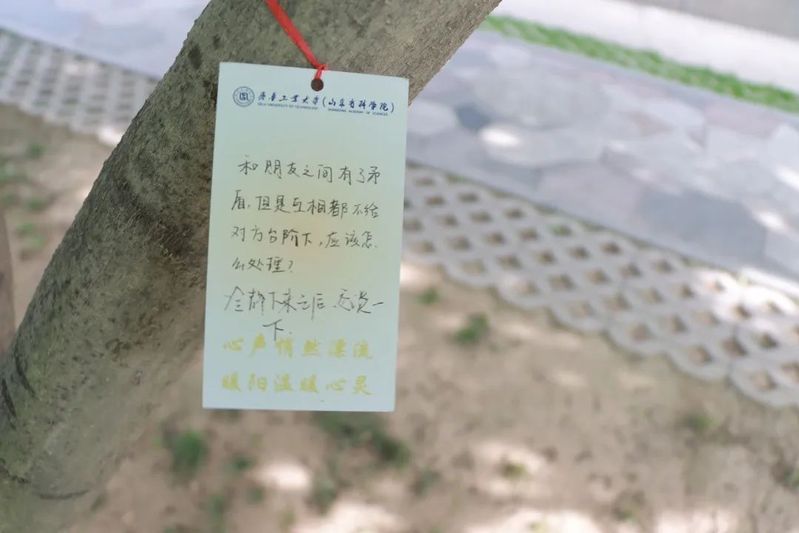 齐鲁工业大学(山东省科学院)
QILU UNIVERSITY OF TECHNOLOGY SHANDONG ACADEMY OF SCIENCES
和朋友之间有了矛
盾,但是互相都不给
对方台阶下,应该怎
么处理?
冷静下来之后 一
下.
心声悄然漂流
暖阳温暖心灵